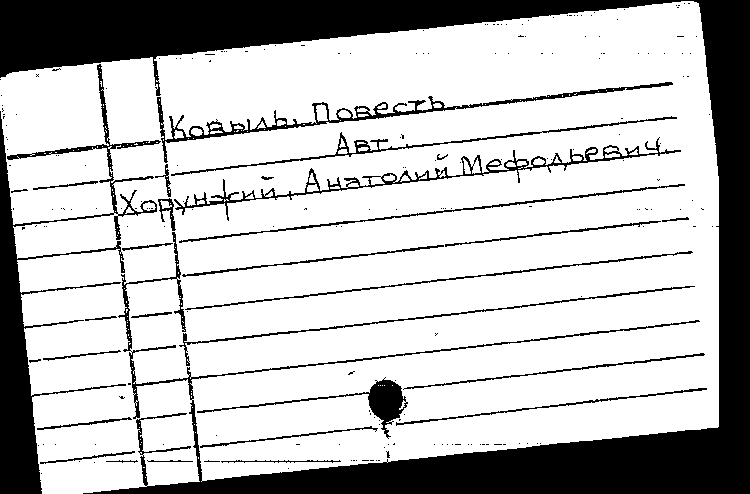 Ковыль. Повесть
Авт.:
Хорунжий, Анатолий Мефодьевич.